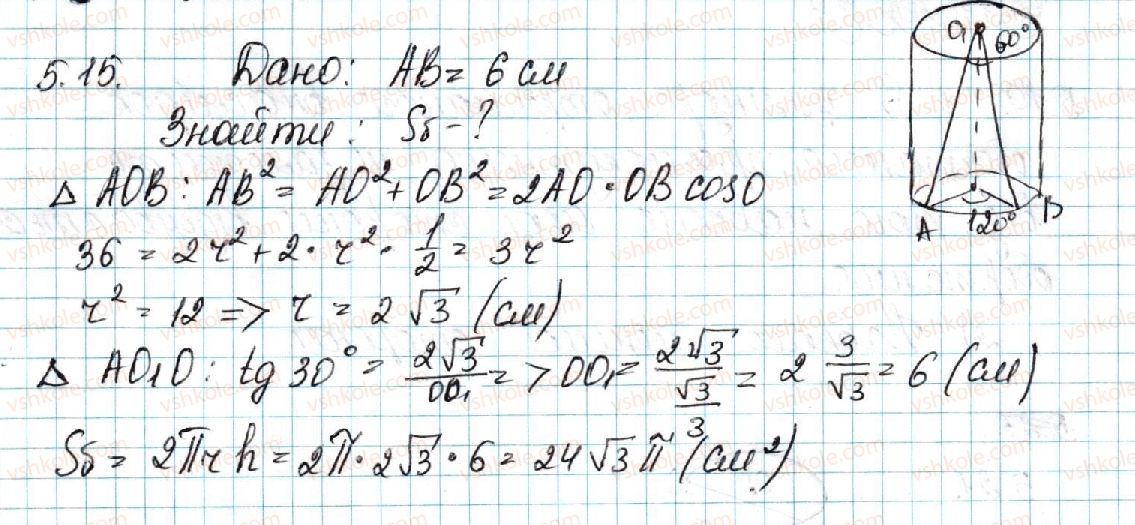 5.15. Дано: AB = 6 см
Знайти: Sб - ?
Δ AOB: AB² = AO² + OB² = 2AO · OB cosO
36 = 2r² + 2 · r² · 1/2 = 3r²
r² = 12 => r = 2√3 (см)
Δ AO₁O: tg 30° = 2√3/OO₁ => OO₁ = 2√3/(√3/3) = 2 3/√3 = 6 (см)
Sб = 2πrh = 2π · 2√3 · 6 = 24√3π (см²)
O₁ 60°
A 120° B